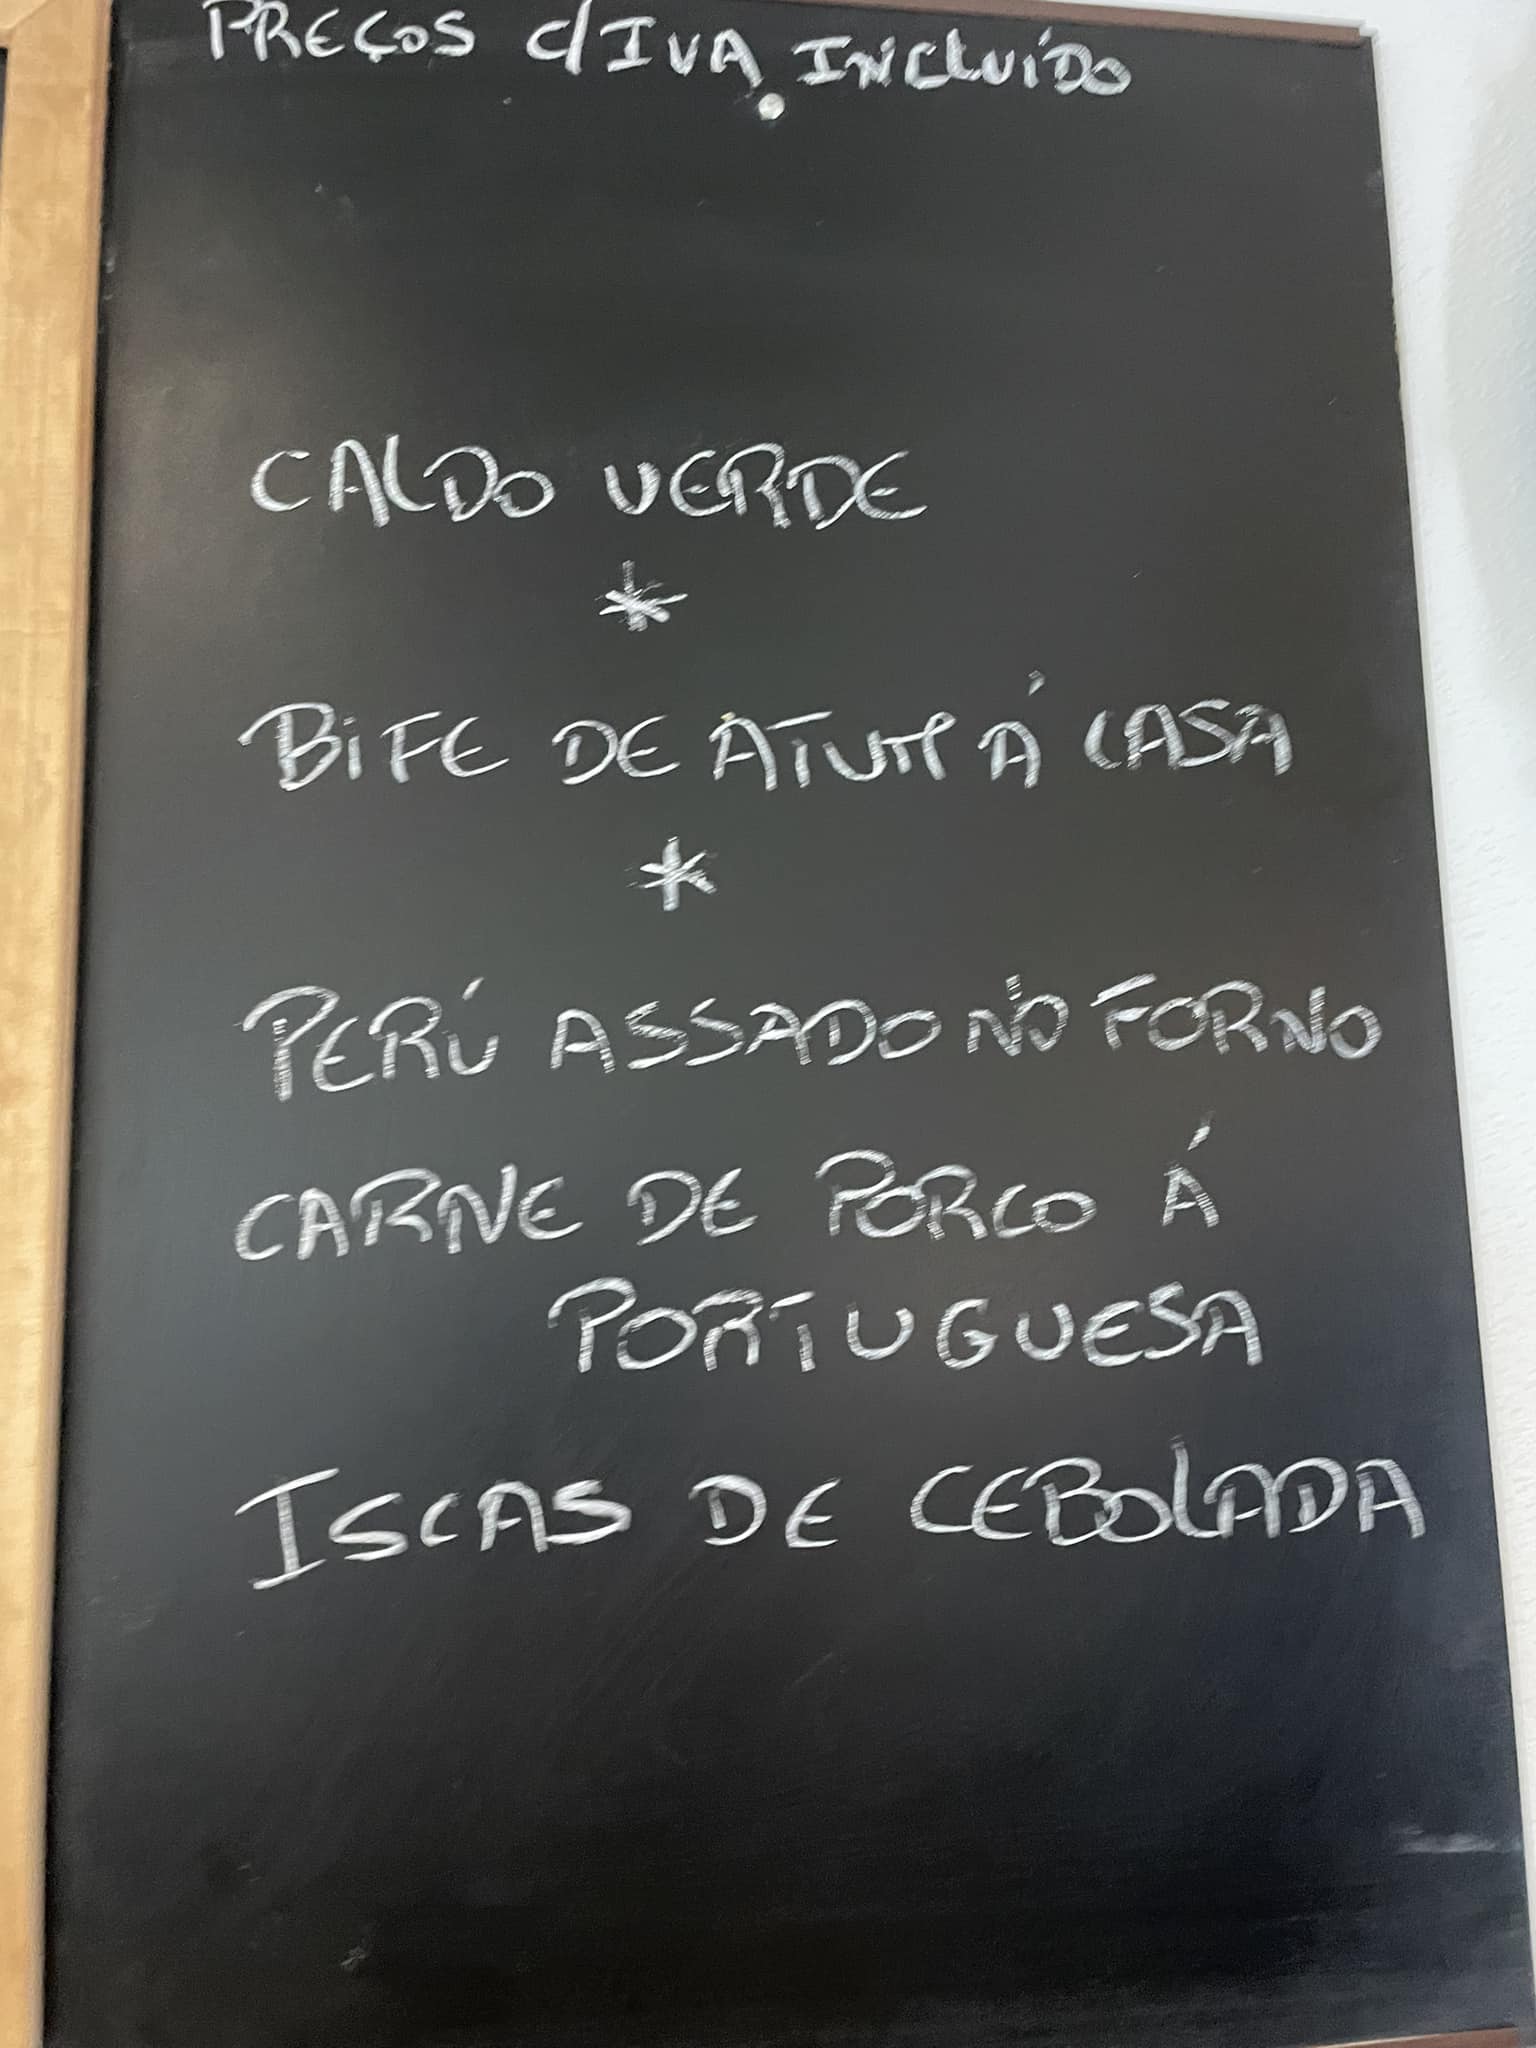 PREÇOS C/IVA INCLUÍDO
CALDO VERDE
*
BIFE DE ATUM Á CASA
*
PERÚ ASSADO NO FORNO
CARNE DE PORCO Á
PORTUGUESA
ISCAS DE CEBOLADA